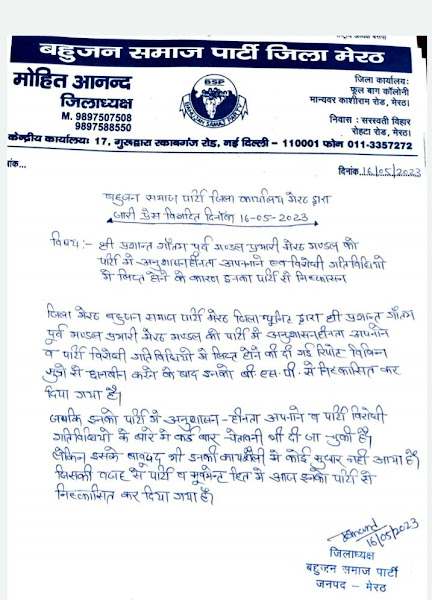 बहुजन समाज पार्टी जिला मेरठ
मोहित आनन्द
जिलाध्यक्ष
M. 9897507508
9897588550
BSP
BAHUJAN SAMAJ PARTY
जिला कार्यालय:
फूल बाग कॉलोनी
मान्यवर काशीराम रोड, मेरठ।
निवास : सरस्वती विहार
रोहटा रोड, मेरठ।
केन्द्रीय कार्यालयः 17, गुरूद्वारा रकाबगंज रोड, नई दिल्ली - 110001 फोन 011-3357272
नांक...
दिनांक 16/05/2023
बहुजन समाज पार्टी जिला कार्यालय मेरठ द्वारा
जारी प्रेस विज्ञप्ति दिनाँक 16-05-2023
विषय:- श्री प्रशान्त गौतम पूर्व मण्डल प्रभारी मेरठ मण्डल को
पार्टी में अनुशासनहीनता अपनाने एवं विरोधी गतिविधियों
में लिप्त होने के कारण इनका पार्टी से निष्कासन
जिला मेरठ बहुजन समाज पार्टी मेरठ जिला यूनिट द्वारा श्री प्रशान्त गौतम
पूर्व मण्डल प्रभारी मेरठ मण्डल को पार्टी में अनुशासनहीनता अपनाने
व पार्टी विरोधी गतिविधियों में लिप्त होने की दी गई रिपोर्ट विभिन्न
सूत्रों से छानबीन करने के बाद इनको बी.एस.पी. से निष्कासित कर
दिया गया है।
जबकि इनको पार्टी में अनुशासन-हीनता अपनाने व पार्टी विरोधी
गतिविधियों के बारे में कई बार चेतावनी भी दी जा चुकी है।
लेकिन इसके बावूद भी इनकी कार्यशैली में कोई सुधार नहीं आया है।
जिसकी वजह से पार्टी व मूवमेन्ट हित में आज इनको पार्टी से
निष्कासित कर दिया गया है।
16/05/2023
जिलाध्यक्ष
बहुजन समाज पार्टी
जनपद - मेरठ